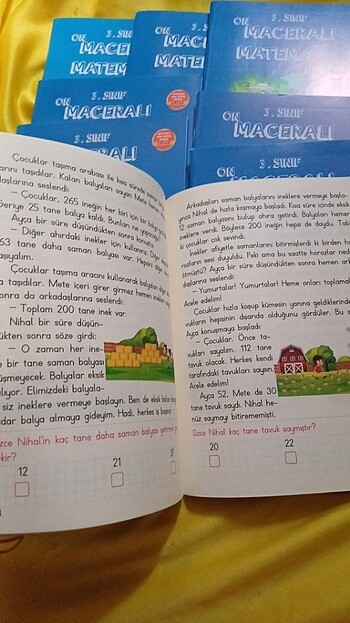 3. SINIF
ON MACERALI
MATEM
3. SINIF
ON MACERALI
MATEMA
3. SINIF
ON MACERALI
MATEMA
3. SINIF
ON MACERALI
3. SINIF
ON MACERALI
3. SINIF
3. SINIF
Çocuklar taşıma arabası ile kısa sürede
arını taşıdılar. Kalan balyaları sayan Mete hemen
daşlarına seslendi:
– Çocuklar, 265 ineğin her biri için bir balya
Geriye 25 tane balya kaldı. Bunları ne yapacağız?
Ayça bir süre düşündükten sonra konuştu:
– Diğer ahırdaki inekler için kullanırız. Diğer
53 tane daha saman balyası var. Hepsini diğer
aşıyalım.
Çocuklar taşıma aracını kullanarak balyaları diğer
a taşıdılar. Mete içeri girer girmez hemen inekleri
onra da arkadaşlarına seslendi:
– Toplam 200 tane inek var.
Nihal bir süre düşün-
ükten sonra söze girdi:
– O zaman her ine-
e bir tane saman balyası
üşmeyecek. Balyalar eksik
liyor. Elimizdeki balyala-
siz ineklere vermeye başlayın. Ben de eksik kalan
adar balya almaya gideyim. Hadi, herkes iş başına!
izce Nihal'in kaç tane daha saman balyası getirmesi
ekir?
12
21
Arkadaşları saman balyalarını ineklere vermeye başla-
yınca Nihal de hızla koşmaya başladı. Kısa süre içinde eksik
12 saman balyasını bulup ahıra getirdi. Balyaları hemen
ineklere verdi. Böylece 200 ineğin hepsi de doydu. Tabi
ki çocuklar çok sevindi.
İnekler afiyetle samanlarını bitirmişlerdi ki birden ho-
rozların sesi duyuldu. Peki ama bu saatte horozlar neden
ötmüştü? Ayça bir süre düşündükten sonra hemen arka-
daşlarına seslendi:
– Yumurtalar! Yumurtalar! Heme onları toplamalıyız.
Acele edelim!
Çocuklar hızla koşup kümesin yanına geldiklerinde
vukların hepsinin dışarıda olduğunu gördüler. Bu sırada
Ayça konuşmaya başladı:
– Çocuklar. Önce ta-
vukları sayalım. 112 tane
tavuk olacak. Herkes kendi
tarafındaki tavukları sayın.
Acele edelim!
Ayça 52, Mete de 30
tane tavuk saydı. Nihal he-
nüz saymayı bitirememişti.
Sizce Nihal kaç tane tavuk saymıştır?
20
22